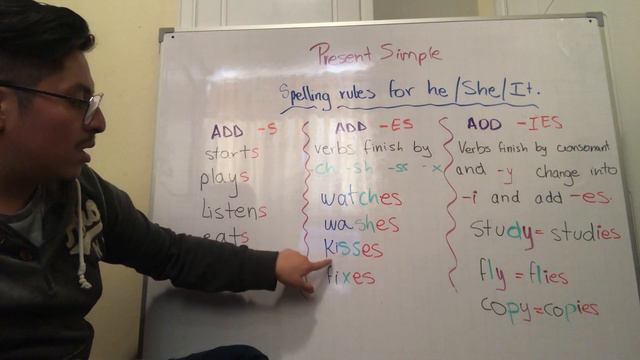 Present Simple
Spelling rules for he/She/It.
ADD -S
starts
plays
Listens
eats
ADD -ES
verbs finish by
-ch -sh -ss -x
watches
washes
Kisses
fixes
ADD -IES
Verbs finish by consonant
and -y change into
-i and add -es.
Study=studies
fly=flies
copy=copies